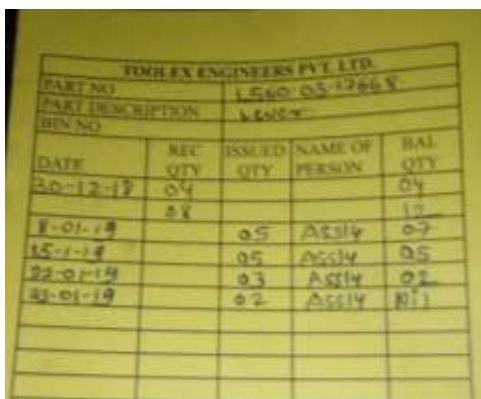 TOOLEX ENGINEERS PVT. LTD.
PART NO L560-03-17668
PART DESCRIPTION Lever
BIN NO
DATE REC QTY ISSUED QTY NAME OF PERSON BAL QTY
20-12-18 04 04
08 12
8-01-19 05 Assly 07
15-1-19 05 Assly 05
22-01-19 03 Assly 02
23-01-19 02 Assly Nil